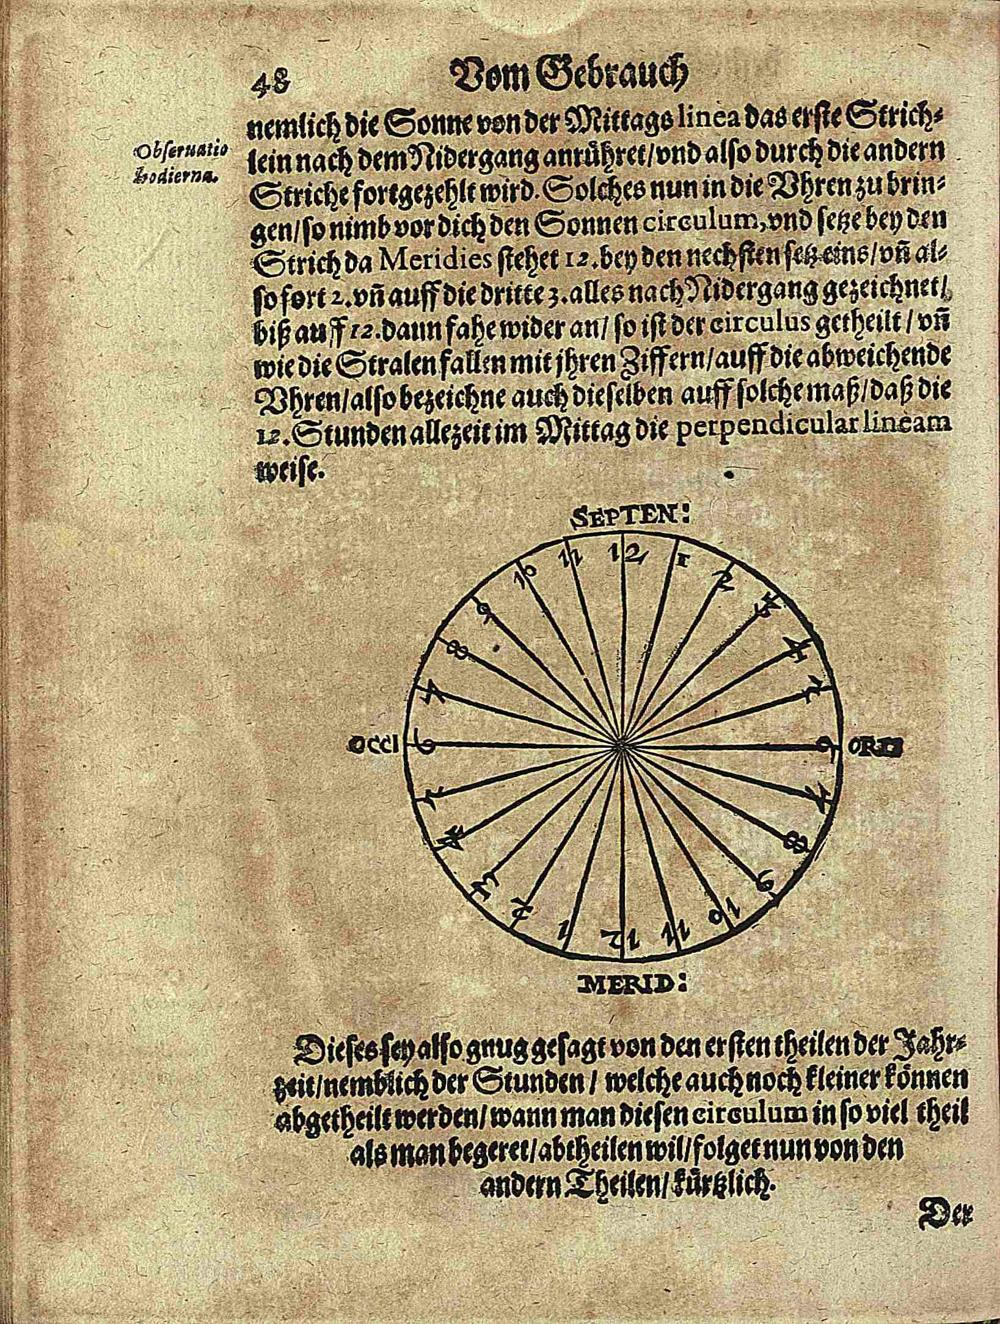 48
Vom Gebrauch
nemlich die Sonne von der Mittags linea das erste Strich⸗
Obseruatio
hodierna.
lein nach dem Nidergang anrühret/vnd also durch die andern
Striche fortgezehlt wird. Solches nun in die Vhren zu brin⸗
gen/so nimb vor dich den Sonnen circulum, vnd setze bey den
Strich da Meridies stehet 12. bey den nechsten setz eins/vñ al⸗
so fort 2. vñ auff die dritte 3. alles nach Nidergang gezeichnet/
biß auff 12. dann fahe wider an/ so ist der circulus getheilt / vñ
wie die Stralen fallen mit jhren Ziffern/auff die abweichende
Vhren/also bezeichne auch dieselben auff solche maß/daß die
12. Stunden allezeit im Mittag die perpendicular lineam
weise.
SEPTEN:
12 1 2 3 4 5 6 7 8 9 10 11 12 1 2 3 4 5 6 7 8 9 10 11
OCCI
ORI
MERID:
Dieses sey also gnug gesagt von den ersten theilen der Jahr⸗
zeit/nemblich der Stunden / welche auch noch kleiner können
abgetheilt werden/wann man diesen circulum in so viel theil
als man begeret/abtheilen wil/folget nun von den
andern Theilen/kürtzlich.
Der